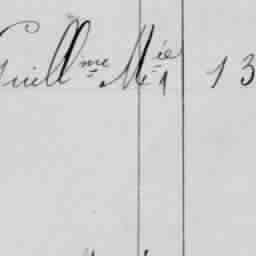 Guillme Mie 1 13